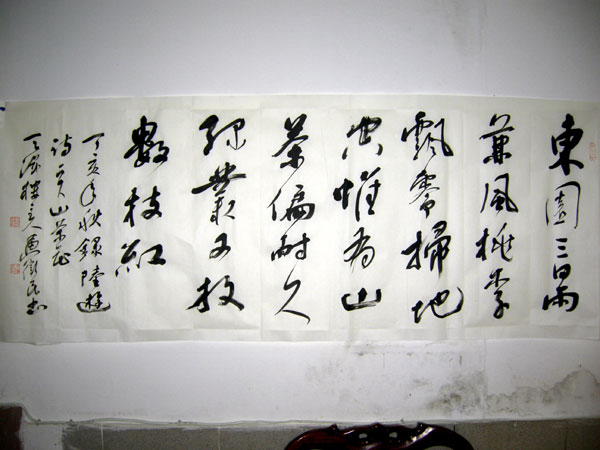 東園三日雨
兼風桃李
飄零掃地
空惟有山
茶偏耐久
緑叢又放
數枝紅
丁亥年秋錄陸游
诗之山茶花
樓主人馬民书